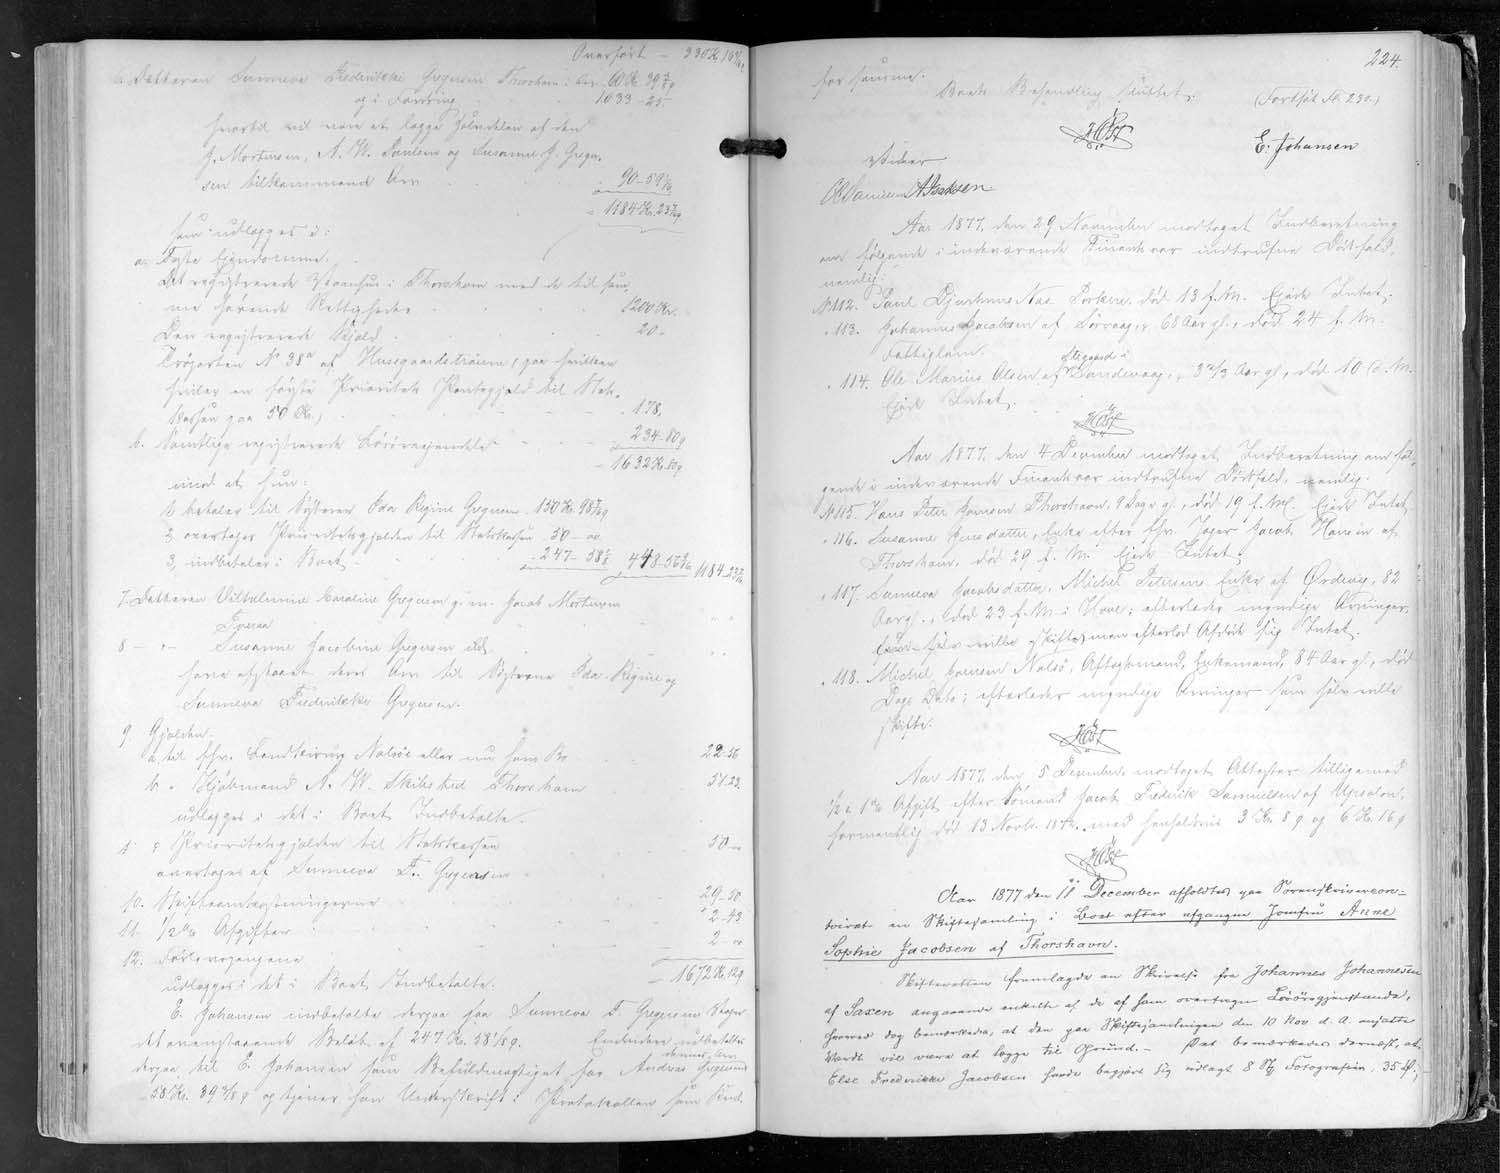 Overført — 330 Kr 16
6. Datteren Sunneva Fredrikke Gregersen Thorshavn: Arv 60 Kr. 39
og i Fordring 1033 - 25
hvortil vil være at lægge Halvdelen af den
J. Mortensen, N. W. Poulsen og Susanne J. Greger-
sen tilkommende Arv 90 - 59
1184 Kr. 23
som udlægges i:
a. Faste Ejendomme.
Det registrerede Vaanhus i Thorshavn med de til sam-
me hørende Rettigheder 1200 Kr.
Den registrerede Kjeld 20 -
Trøgarten No 38a af Huusgaardstraûm (paa hvilken
hviler en første Prioritets Pantegjæld til Stats-
kassen paa 50 Kr.) 178.
b. Samtlige registrerede Løsøregjendele 234 - 80
1632 Kr. 80
imod at hun:
1, betaler til Søsteren Ida Regine Gregersen 150 Kr. 98
2, overtager Prioritetsgjælden til Statskassen 50 -
3, indbetaler i Boet 247 - 58 448 - 56 1184 - 23
7. Datteren Vilhelmine Caroline Gregersen g. m. Jacob Mortensen
Tveraa
8 — " — Susanne Jacobine Gregersen
have afstaaet deres Arv til Søstrene Ida Regine og
Sunneva Fredrikke Gregersen.
9. Gjælden.
a, til fhv. Landkirurg Nolsøe eller nu hans Bo 22 - 56
b " Kjøbmand N. W. Skibsted Thorshavn 51 - 23
udlægges i det i Boet Indbetalte.
Prioritetsgjælden til Statskassen 50 -
overtages af Sunneva F. Gregersen
10. Skifteomkostningerne 29 - 50
11. 1/2 % Afgiften 2 - 43
12. Forlovspengene 2 -
udlægges i det i Boet Indbetalte. 1672 Kr. 12
E. Johansen indbetalte derpaa for Sunneva F. Gregersen
det ovenstaaende Beløb af 247 Kr. 58 Endvidere udbetaltes
dennes Arv
derpaa til E. Johansen som Befuldmægtiget for Andreas Gregersen
58 Kr. 39 og tjener hans Underskrift i Protokollen som Kvit-
224.
for samme.
Boets Behandling sluttet. (Fortsat No. 230.)
Høst
E. Johansen
Vidner
A. Isaksen
Aar 1877, den 29 November modtaget Indberetning
om følgende i indeværende Finantsaar indtrufne Dødsfald,
nemlig:
No 112. Poul Djurhuus Næs Porkere, død 13 f. M. Ejede Intet.
" 113. Johannes Jacobsen af Sørvaag, 68 Aar gl., død 24 f. M.
Fattiglem.
etsteds i
" 114. Ole Marius Olsen af Sandevaag, 3 2/3 Aar gl., død 10 d. M.
Ejede Intet.
Høst
Aar 1877, den 4 December modtaget Indberetning om føl-
gende i indeværende Finantsaar indtrufne Dødsfald, nemlig:
No 115. Hans Peter Jensen Thorshavn, 9 Dage gl., død 19 f. M. Ejede Intet.
" 116. Susanne Jensdatter, Enke efter fhv. Jæger Jacob Hansen af
Thorshavn, død 29 f. M. Ejede Intet.
" 117. Sunneva Jacobsdatter, Michel Petersens Enke af Ørdevig, 82
Aar gl., død 23 f. M. i Hove; efterlader myndige Arvinger,
efterlod Afdøde sig Intet.
" 118. Michel Joensen Nolsø, Aftægtsmand, Enkemand, 84 Aar gl., død
Dags Dato; efterlader myndige Arvinger som selv ville
skifte.
Høst
Aar 1877 den 5 December, modtaget Attester tilligemed
1/2 & 1 % Afgift efter Sømand Jacob Fredrik Samuelsen af Upsalon,
formentlig død 13 Novbr. 1872, med henholdsvis 3 Kr. 8 og 6 Kr. 16
Høst
Aar 1877 den 11 December afholdtes paa Sorenskrivercon-
toiret en Skiftesamling i Boet efter afgangne Jomfru Anne
Sophie Jacobsen af Thorshavn.
Skifteretten fremlagde en Skrivelse fra Johannes Johannesen
af Saxen angaaende enkelte af de af ham overtagne Løsøregjenstande,
hvorved dog bemærkedes, at den paa Skiftesamlingen den 10 Nov. d. A. ansatte
Værdi vil være at lægge til Grund. — Det bemærkedes dernæst, at
Else Fredrikke Jacobsen havde begjært sig udlagt 8 St. Fotografier, 35 Ø,